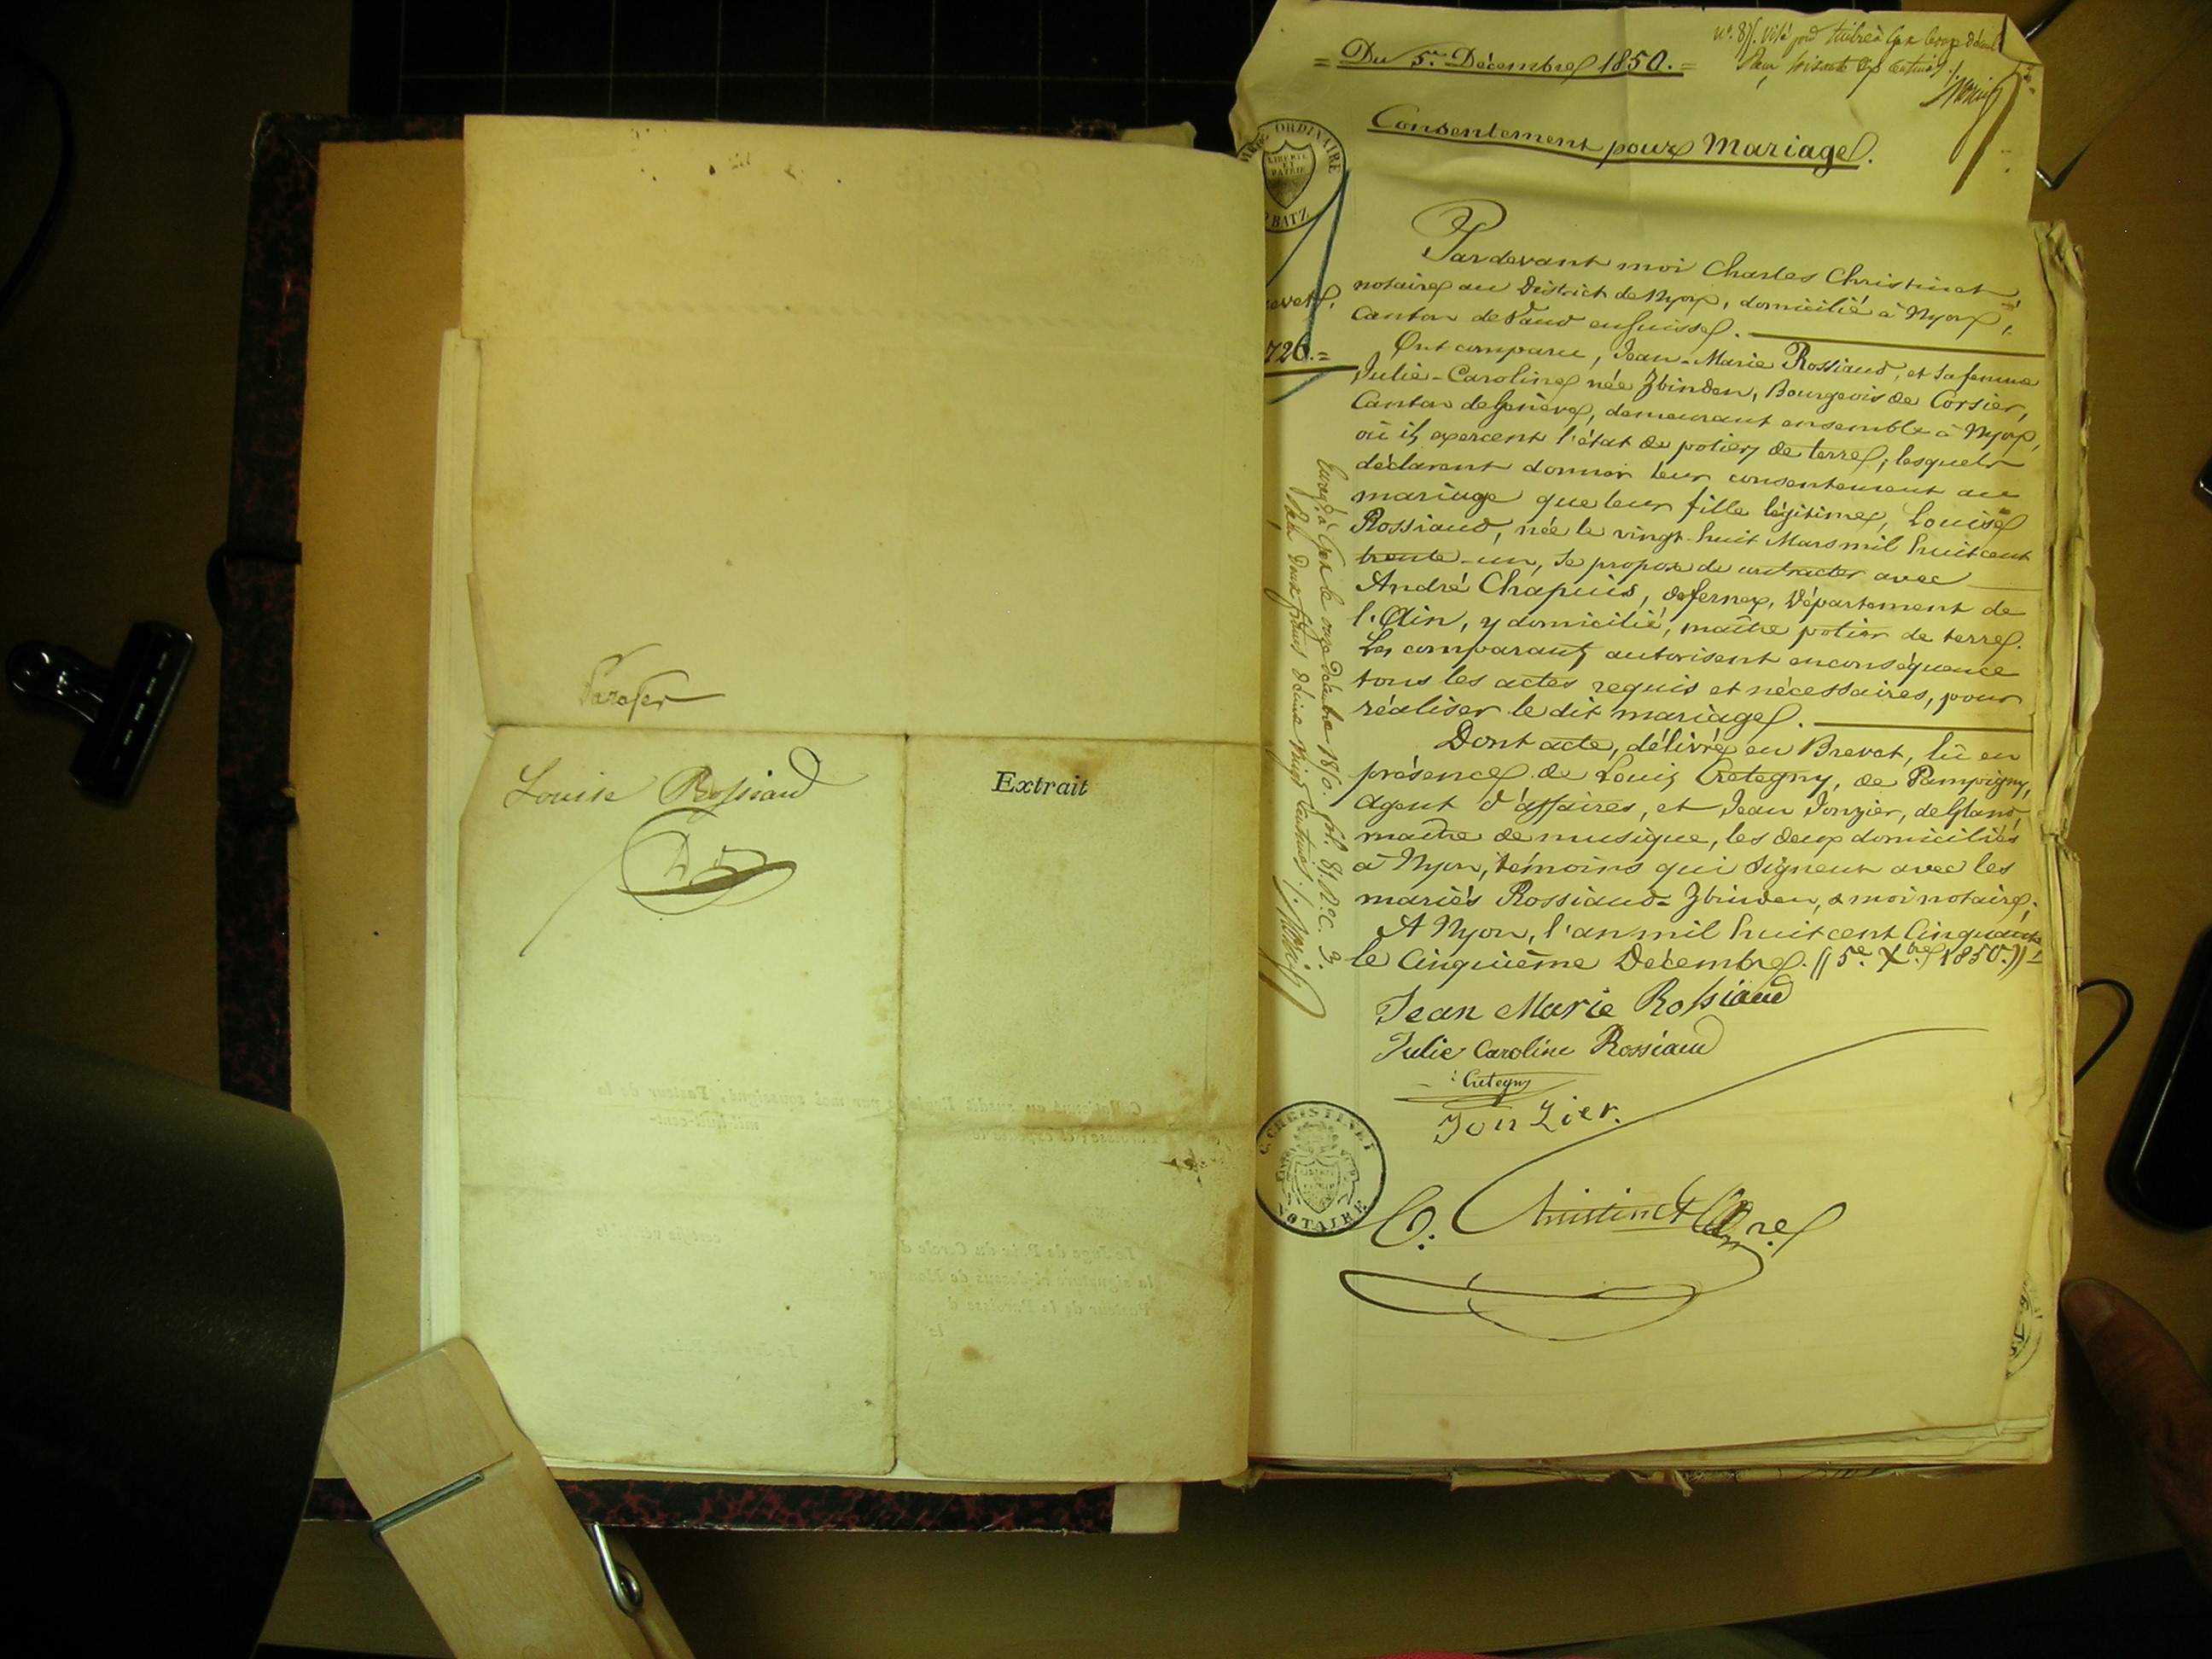 Parafer
Louise Rossiaud
Extrait
= Du 5e. Décembre 1850. =
Consentement pour Mariage.
TIMBRE ORDINAIRE
LIBERTÉ
ET
PATRIE
BATZ
726.=
Pardevant moi Charles Christinet,
notaire au District de Nyon, domicilié à Nyon,
Canton de Vaud en Suisse.
Ont comparu, Jean-Marie Rossiaud, et sa femme
Julie-Caroline née Zbinden, Bourgeois de Corsier,
Canton de Genève, demeurant ensemble à Nyon,
où ils exercent l'état de potiers de terre, lesquels
déclarent donner leur consentement au
mariage que leur fille légitime, Louise
Rossiaud, née le vingt-huit Mars mil huit cent
trente-un, se propose de contracter avec
André Chapuis, de fernex, Département de
l'Ain, y domicilié, maître potier de terre.
Les comparants autorisent en conséquence
tous les actes requis et nécessaires, pour
réaliser le dit mariage.
Dont acte, délivré en Brevet, lû en
présence de Louis Cretegny, de Pampigny,
Agent d'affaires, et Jean Jonzier, de Gland,
maître de musique, les deux domiciliés
à Nyon, témoins qui signent avec les
mariés Rossiaud-Zbinden, & moi notaire.
A Nyon, l'an mil huit cent Cinquante
le Cinquième Décembre. ((5e. Xbre 1850.))
Jean Marie Rossiaud
Julie Caroline Rossiaud
Cretegny
Jonzier.
C. CHRISTINET
NOTAIRE
C. Christinet Nre
Enregé. à Gex le onze Décembre 1850. fol. 87. Ro. C. 3.